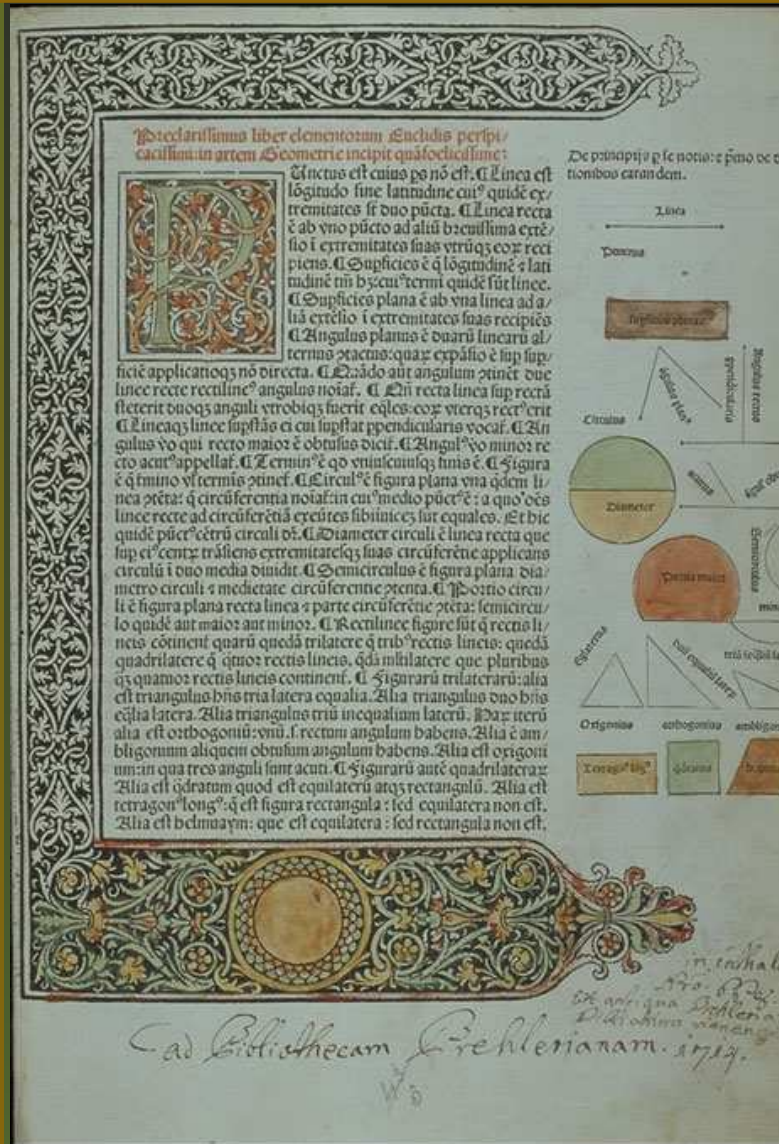 Preclarissimus liber elementorum Euclidis perspi/
cacissimi: in artem Geometrie incipit quāfoelicissime:
Punctus est cuius ps nō est. ¶ Linea est
lōgitudo sine latitudine cuiꝰ quidē ex/
tremitates st duo pūcta. ¶ Linea recta
ē ab vno pūcto ad aliū breuissima extē/
sio ī extremitates suas vtrūqꝫ eoꝝ reci
piens. ¶ Supficies ē q̄ lōgitudinē ⁊ lati
tudinē tm̄ hꝫ: cuiꝰ termi quidē sūt linee.
¶ Supficies plana ē ab vna linea ad a/
liā extēsio ī extremitates suas recipiēs
¶ Angulus planus ē duarū linearū al/
ternus ꝯtactus: quaꝝ expāsio ē sup sup/
ficiē applicatioqꝫ nō directa. ¶ Quādo aūt angulum ꝯtinēt due
linee recte rectilineꝰ angulus noīat̄. ¶ Qn̄ recta linea sup rectā
steterit duoqꝫ anguli vtrobiqꝫ fuerit eq̄les: eoꝝ vterqꝫ rectꝰ erit
¶ Lineaqꝫ linee supstās ei cui supstat ppendicularis vocat̄. ¶ An
gulus vo qui recto maior ē obtusus dicit̄. ¶ Angulꝰ vo minor re
cto acutꝰ appellat̄. ¶ Terminꝰ ē qd vniuscuiusqꝫ finis ē. ¶ Figura
ē q̄ tmino vl termis ꝯtinet̄. ¶ Circulꝰ ē figura plana vna qdem li/
nea ꝯtēta: q̄ circūferentia noīat̄: in cuiꝰ medio pūctꝰ ē: a quo oēs
linee recte ad circūferētiā exeūtes sibiinuicē sut equales. Et hic
quidē pūctꝰ cētrū circuli dr̄. ¶ Diameter circuli ē linea recta que
sup eiꝰ centꝝ trāsiens extremitatesqꝫ suas circūferētie applicans
circulū ī duo media diuidit. ¶ Semicirculus ē figura plana dia/
metro circuli ⁊ medietate circūferentie ꝯtenta. ¶ Portio circu/
li ē figura plana recta linea ⁊ parte circūferētie ꝯtēta: semicircu/
lo quidē aut maior aut minor. ¶ Rectilinee figure sūt q̄ rectis li/
neis cōtinent̄ quarū quedā trilatere q̄ tribꝰ rectis lineis: quedā
quadrilatere q̄ qtuor rectis lineis. qdā mltilatere que pluribus
qꝫ quatuor rectis lineis continent̄. ¶ Figurarū trilaterarū: alia
est triangulus hn̄s tria latera equalia. Alia triangulus duo hn̄s
eq̄lia latera. Alia triangulus triū inequalium laterū. Haꝝ iterū
alia est orthogoniū: vnū .s. rectum angulum habens. Alia ē am/
bligonium aliquem obtusum angulum habens. Alia est oxigoni
um: in qua tres anguli sunt acuti. ¶ Figurarū autē quadrilateraꝝ
Alia est qdratum quod est equilaterū atqꝫ rectangulū. Alia est
tetragonꝰ longꝰ: q̄ est figura rectangula: sed equilatera non est.
Alia est helmuaym: que est equilatera: sed rectangula non est.
De principijs p se notis: ⁊ pmo de
tionibus earandem.
Linea
Punctus
Supficies plana
angulus planꝰ
ppendicularis
Angulus rectus
Circulus
Diameter
acutus
Portio maior
Semicirculus
Eglaterus
duū equaliū laterū
Oxigonius
orthogonius
ambligonius
Tetragonꝰ lōgꝰ
qdratus
ad Bibliothecam Prehlerianam. 1714.